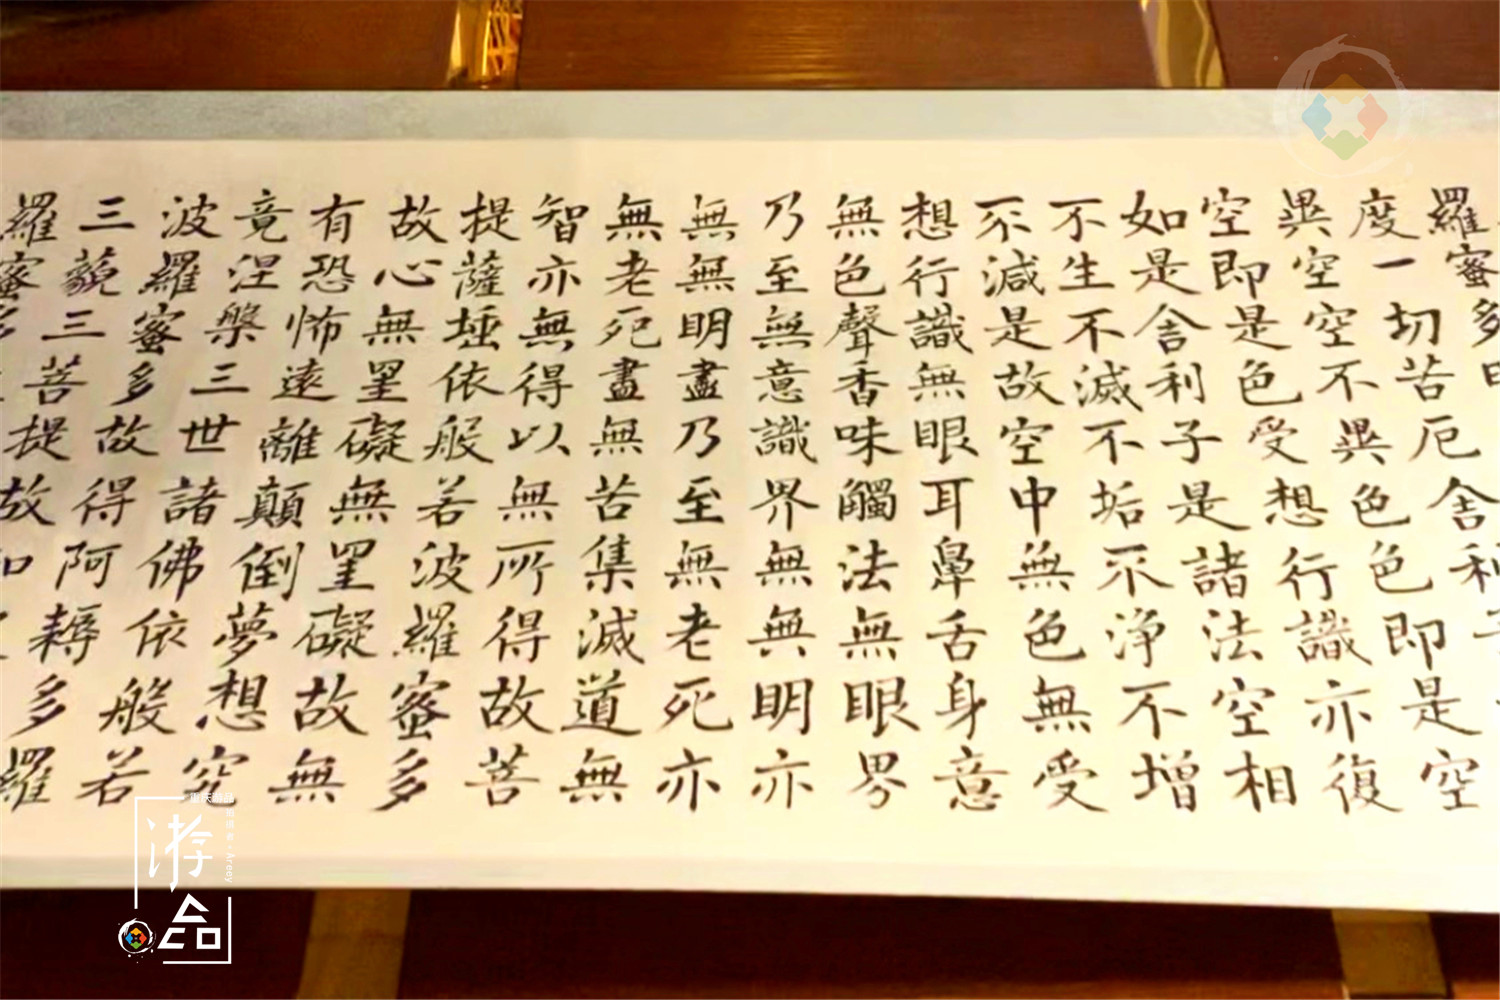 羅蜜多
度一切苦厄舍利子
異空空不異色色即是空
空即是色受想行識亦復
如是舍利子是諸法空相
不生不滅不垢不淨不增
不減是故空中無色無受
想行識無眼耳鼻舌身意
無色聲香味觸法無眼界
乃至無意識界無無明亦
無無明盡乃至無老死亦
無老死盡無苦集滅道無
智亦無得以無所得故菩
提薩埵依般若波羅蜜多
故心無罣礙無罣礙故無
有恐怖遠離顛倒夢想究
竟涅槃三世諸佛依般若
波羅蜜多故得阿耨多羅
三藐三菩提故知
羅蜜多
游合